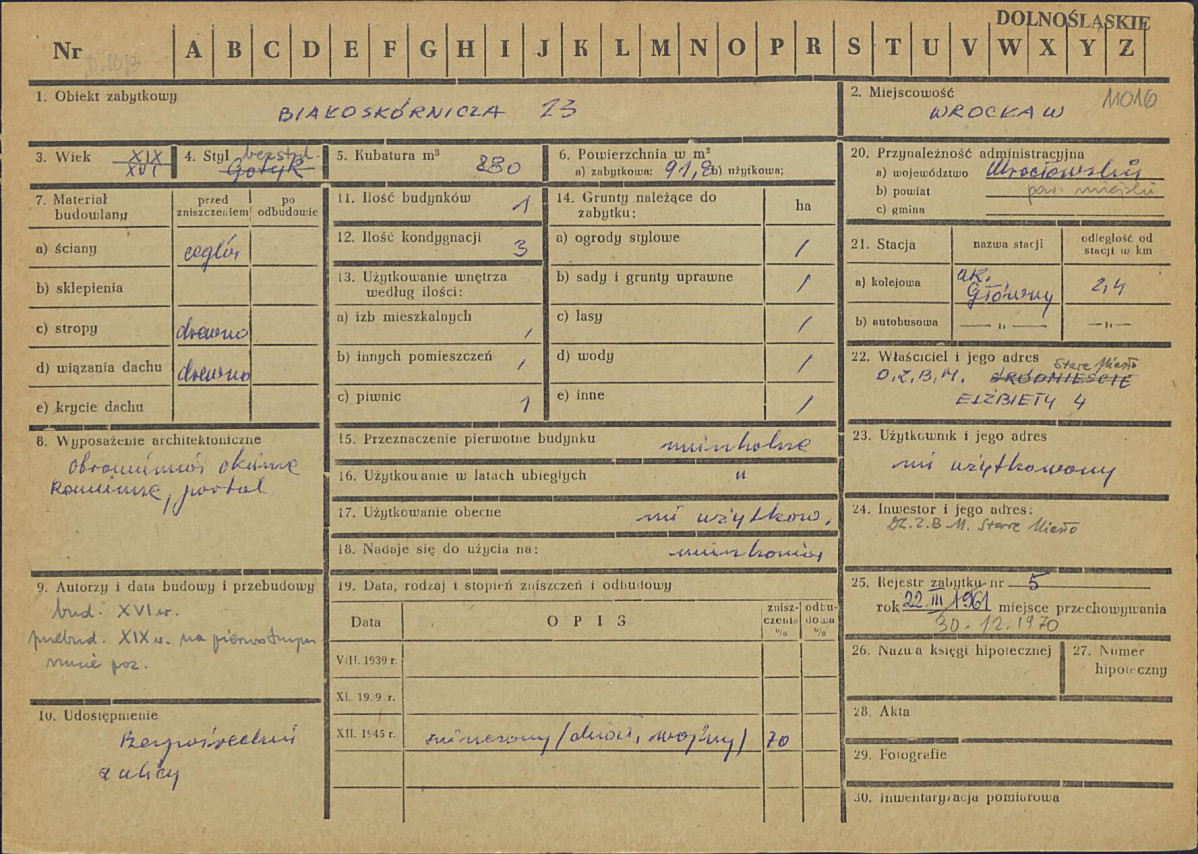 DOLNOŚLĄSKIE
Nr A B C D E F G H I J K L M N O P R S T U V W X Y Z
1. Obiekt zabytkowy
BIAŁOSKÓRNICZA 23
2. Miejscowość
11016
WROCŁAW
3. Wiek XIX
XVI
4. Styl bezstyl.
Gotyk
5. Kubatura m³ 880
6. Powierzchnia w m²
a) zabytkowa: 91,8 b) użytkowa:
7. Materiał budowlany
przed zniszczeniem
po odbudowie
a) ściany cegła
b) sklepienia
c) stropy drewno
d) wiązania dachu drewno
e) krycie dachu
8. Wyposażenie architektoniczne
obramienia okienne
kamienne, portal
9. Autorzy i data budowy i przebudowy
bud. XVI w.
przebud. XIX w. na pierwotnym
murze poz.
10. Udostępnienie
Bezpośredni
z ulicy
11. Ilość budynków 1
12. Ilość kondygnacji 3
13. Użytkowanie wnętrza
według ilości:
a) izb mieszkalnych /
b) innych pomieszczeń /
c) piwnic 1
14. Grunty należące do
zabytku:
ha
a) ogrody stylowe /
b) sady i grunty uprawne /
c) lasy /
d) wody /
e) inne /
15. Przeznaczenie pierwotne budynku mieszkalne
16. Użytkowanie w latach ubiegłych "
17. Użytkowanie obecne nie użytkow.
18. Nadaje się do użycia na: mieszkania
19. Data, rodzaj i stopień zniszczeń i odbudowy
Data
OPIS
znisz-
czenia
%
odbu-
dowa
%
VIII. 1939 r.
XI. 1939 r.
XII. 1945 r. zniszczony (dział. wojny) 70
20. Przynależność administracyjna
a) województwo Wrocławskie
b) powiat pow. miejski
c) gmina
21. Stacja
nazwa stacji
odległość od
stacji w km
a) kolejowa
Główny
2,4
b) autobusowa — " — — " —
22. Właściciel i jego adres
D.Z.B.M. ŚRÓDMIEŚCIE Stare Miasto
ELŻBIETY 4
23. Użytkownik i jego adres
nie użytkowany
24. Inwestor i jego adres:
DZ.Z.B.M. Stare Miasto
25. Rejestr zabytku nr 5
rok 22.III 1961 miejsce przechowywania
30.12.1970
26. Nazwa księgi hipotecznej
27. Numer
hipoteczny
28. Akta
29. Fotografie
30. Inwentaryzacja pomiarowa